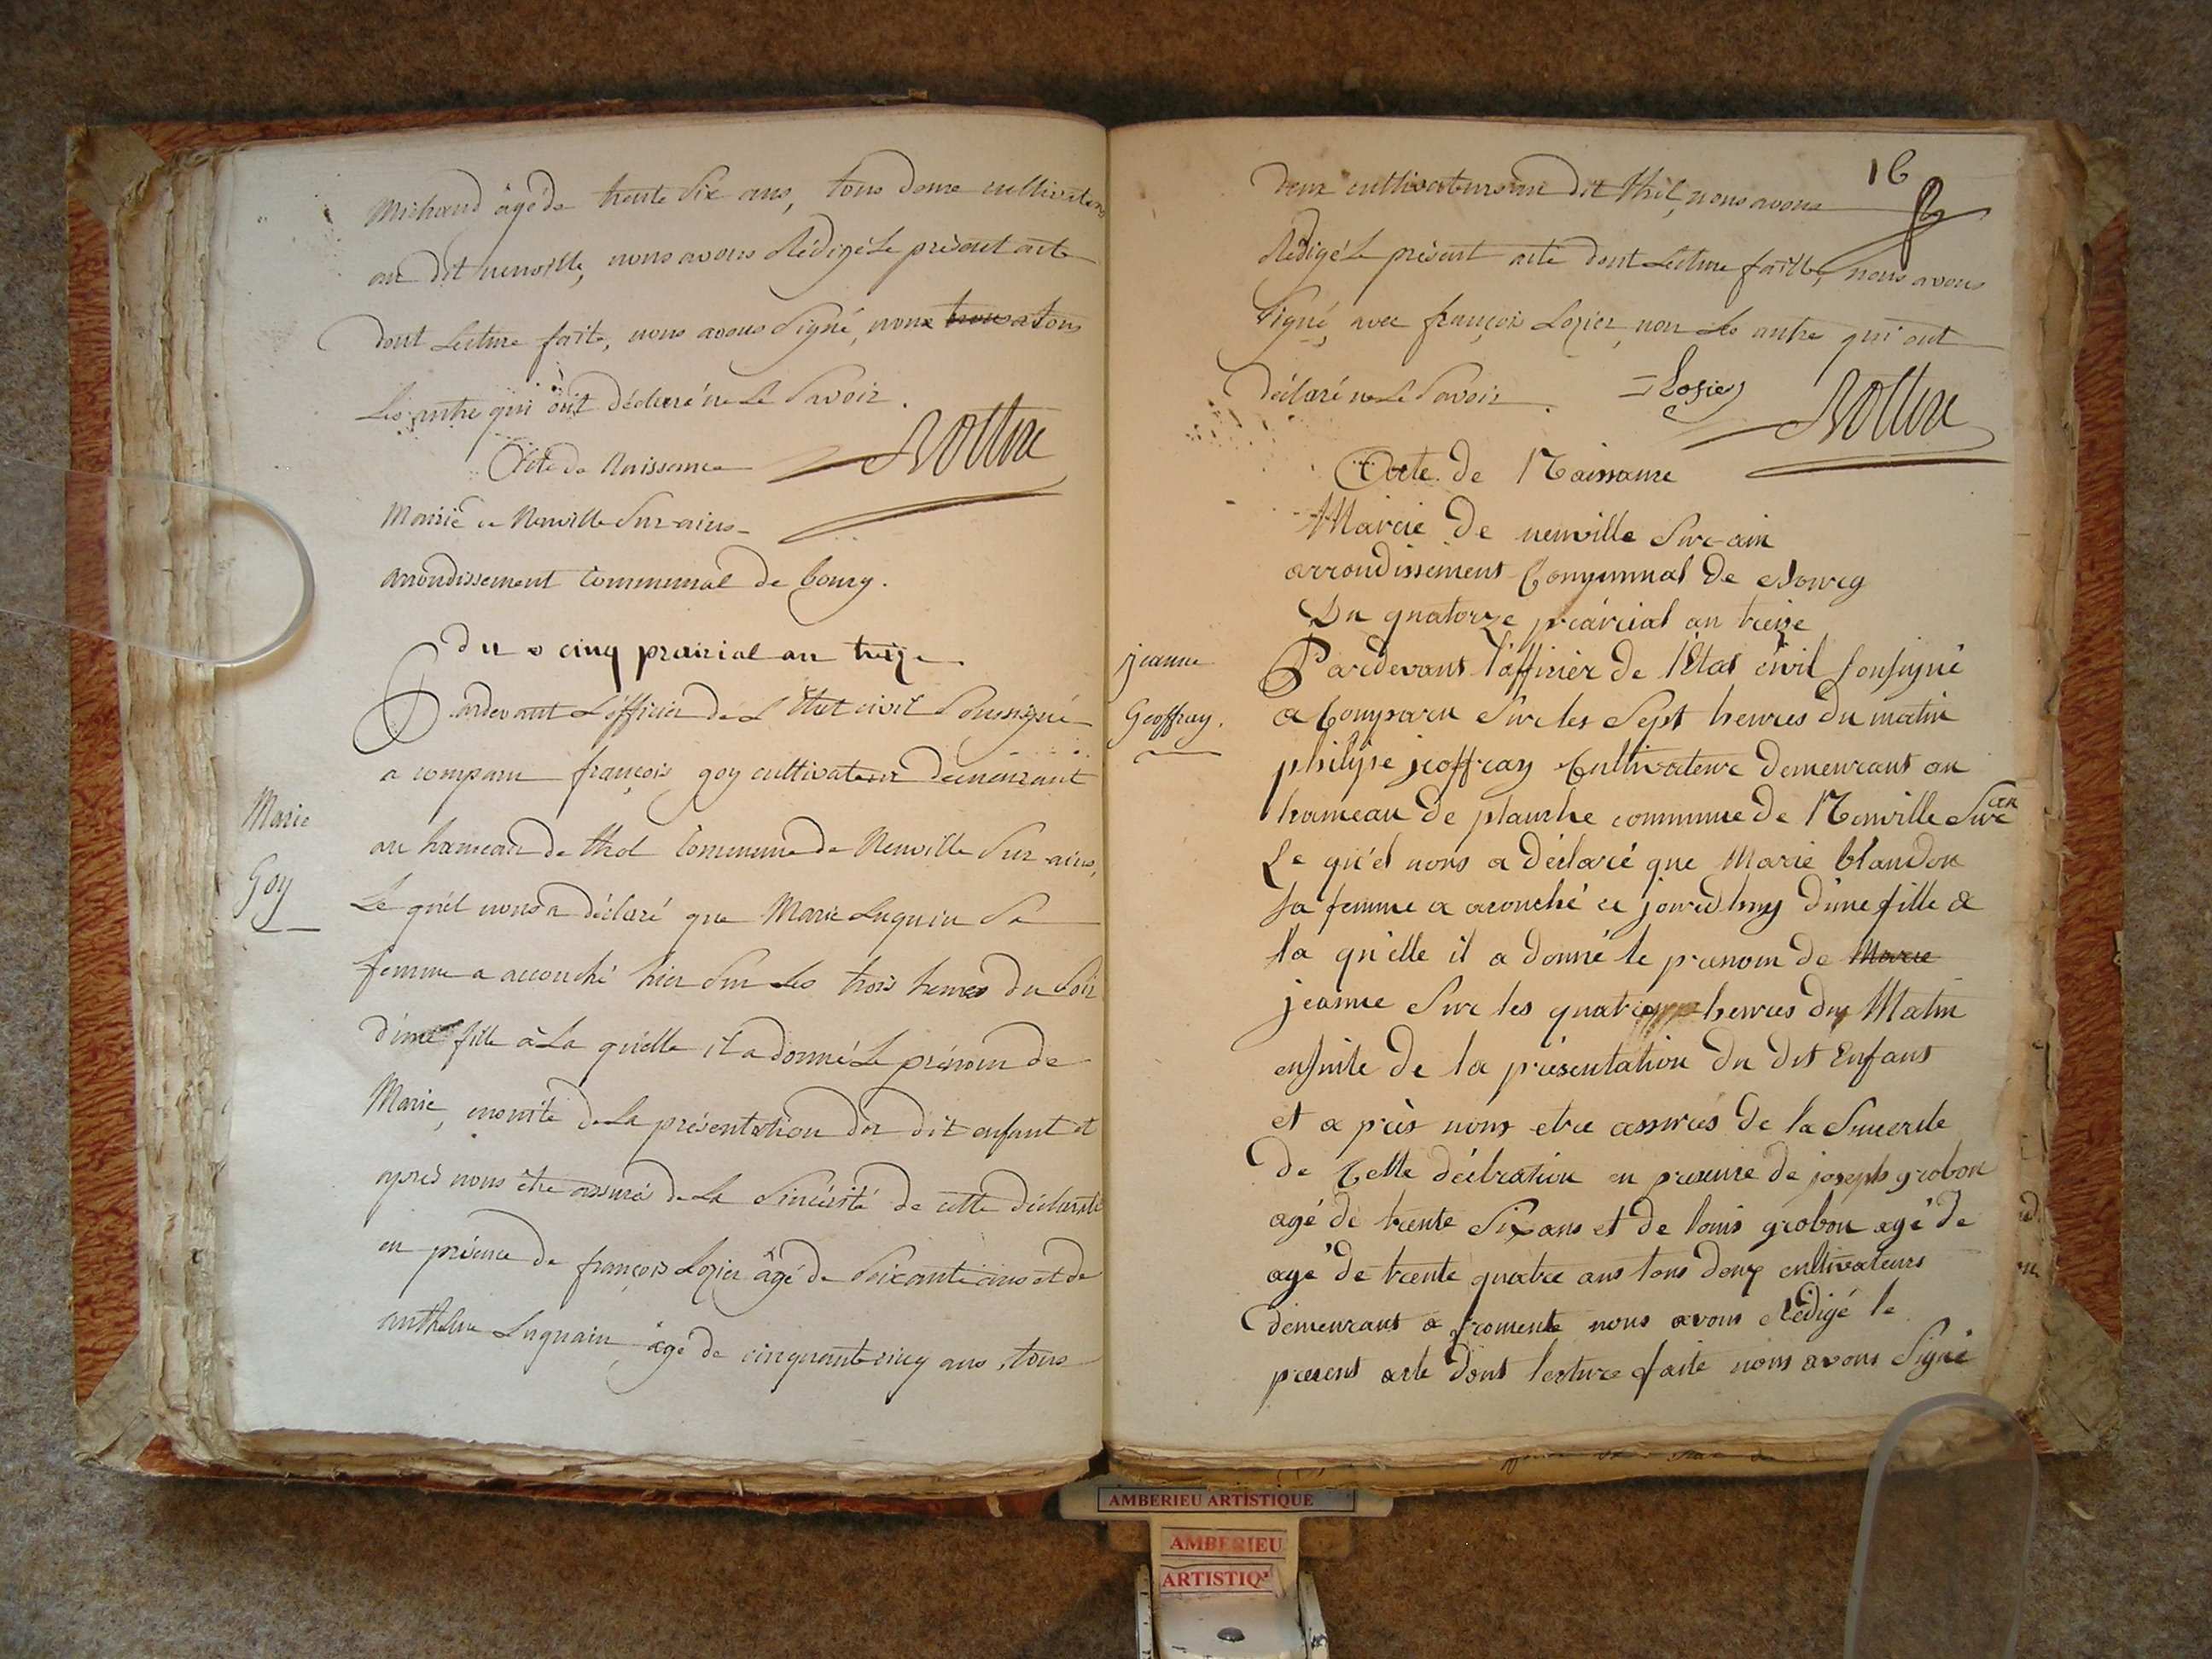 Michaud âgé de trente Six ans, tous deux cultivateurs
au dit neuville, nous avons Rédigé Le présent acte
dont Lecture faite, nous avons Signé, non
Les autre qui ont déclaré ne Le Savoir.
Acte de Naissance
Mairie de Neuville Sur-ains-
arrondissement Communal de bourg.
du cinq prairial an treize
Pardevant L'officier de L'Etat civil Soussigné
a comparu françois goy cultivateur demeurant
Marie
Goy
au hameau de thol Commune de Neuville Sur-ains,
Le quel nous a déclaré que Marie Luguin Sa
femme a accouché hier Sur Les trois heures du Soir
d'une fille à La qu'elle il a donné Le prénom de
Marie, ensuite de La présentation du dit enfant et
après nous être assuré de La Sincérité de cette déclarati
en présence de françois Lozier âgé de Soixante ans et de
anthelme Luguain âgé de cinquante cinq ans, tous
16
deux cultivateurs au dit thol, nous avons
Rédigé Le présent acte dont Lecture faitte, nous avons
Signé, avec françois Lozier, non Les autre qui ont
déclaré ne Le Savoir.
Losier
Acte de Naissance
Mairie de neuville Sur-ain
arrondissement Communal de Bourg
Du quatorze prairial an treize
jeanne
Geoffray.
Pardevant l'affisier de l'Etat civil Sousigné
a Comparu Sur les Sept heures du matin
philipe jeoffray Cultivateur demeurant au
hameau de planche commune de Neuville Sur an
Le qu'el nous a déclaré que Marie blandon
Sa femme a acouché ce jourdhuy d'une fille a
la qu'elle il a donné le prenom de Marie
jeanne Sur les quatre heures du Matin
ensuite de la présentation du dit Enfant
et a près nous etre assurés de la Sincerite
de Cette déclration en presence de joseph grobon
agé de trente Six ans et de louis grobon agé de
agé de trente quatre ans tous deux cultivateurs
demeurant a fromente nous avons Rédigé le
presens acte dont lecture faite nous avons Signé
AMBERIEU ARTISTIQUE
AMBERIEU
ARTISTIQ